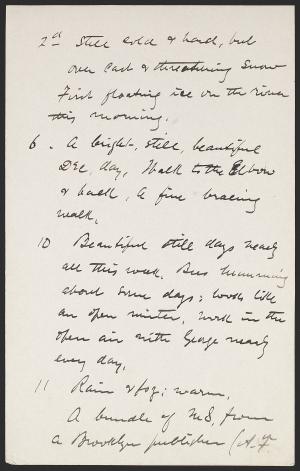 2d Still cold & hard, but
over cast & threatening snow
First floating ice on the river
this morning.
6. A bright, still, beautiful
Dec. day. Walk to the Elbow
& back. A fine bracing
walk.
10 Beautiful still days nearly
all this week. Bees humming
about some days; looks like
an open winter. Work in the
open air with George nearly
every day.
11 Rain & fog; warm.
A bundle of MS, from
a Brooklyn publisher (A.F.